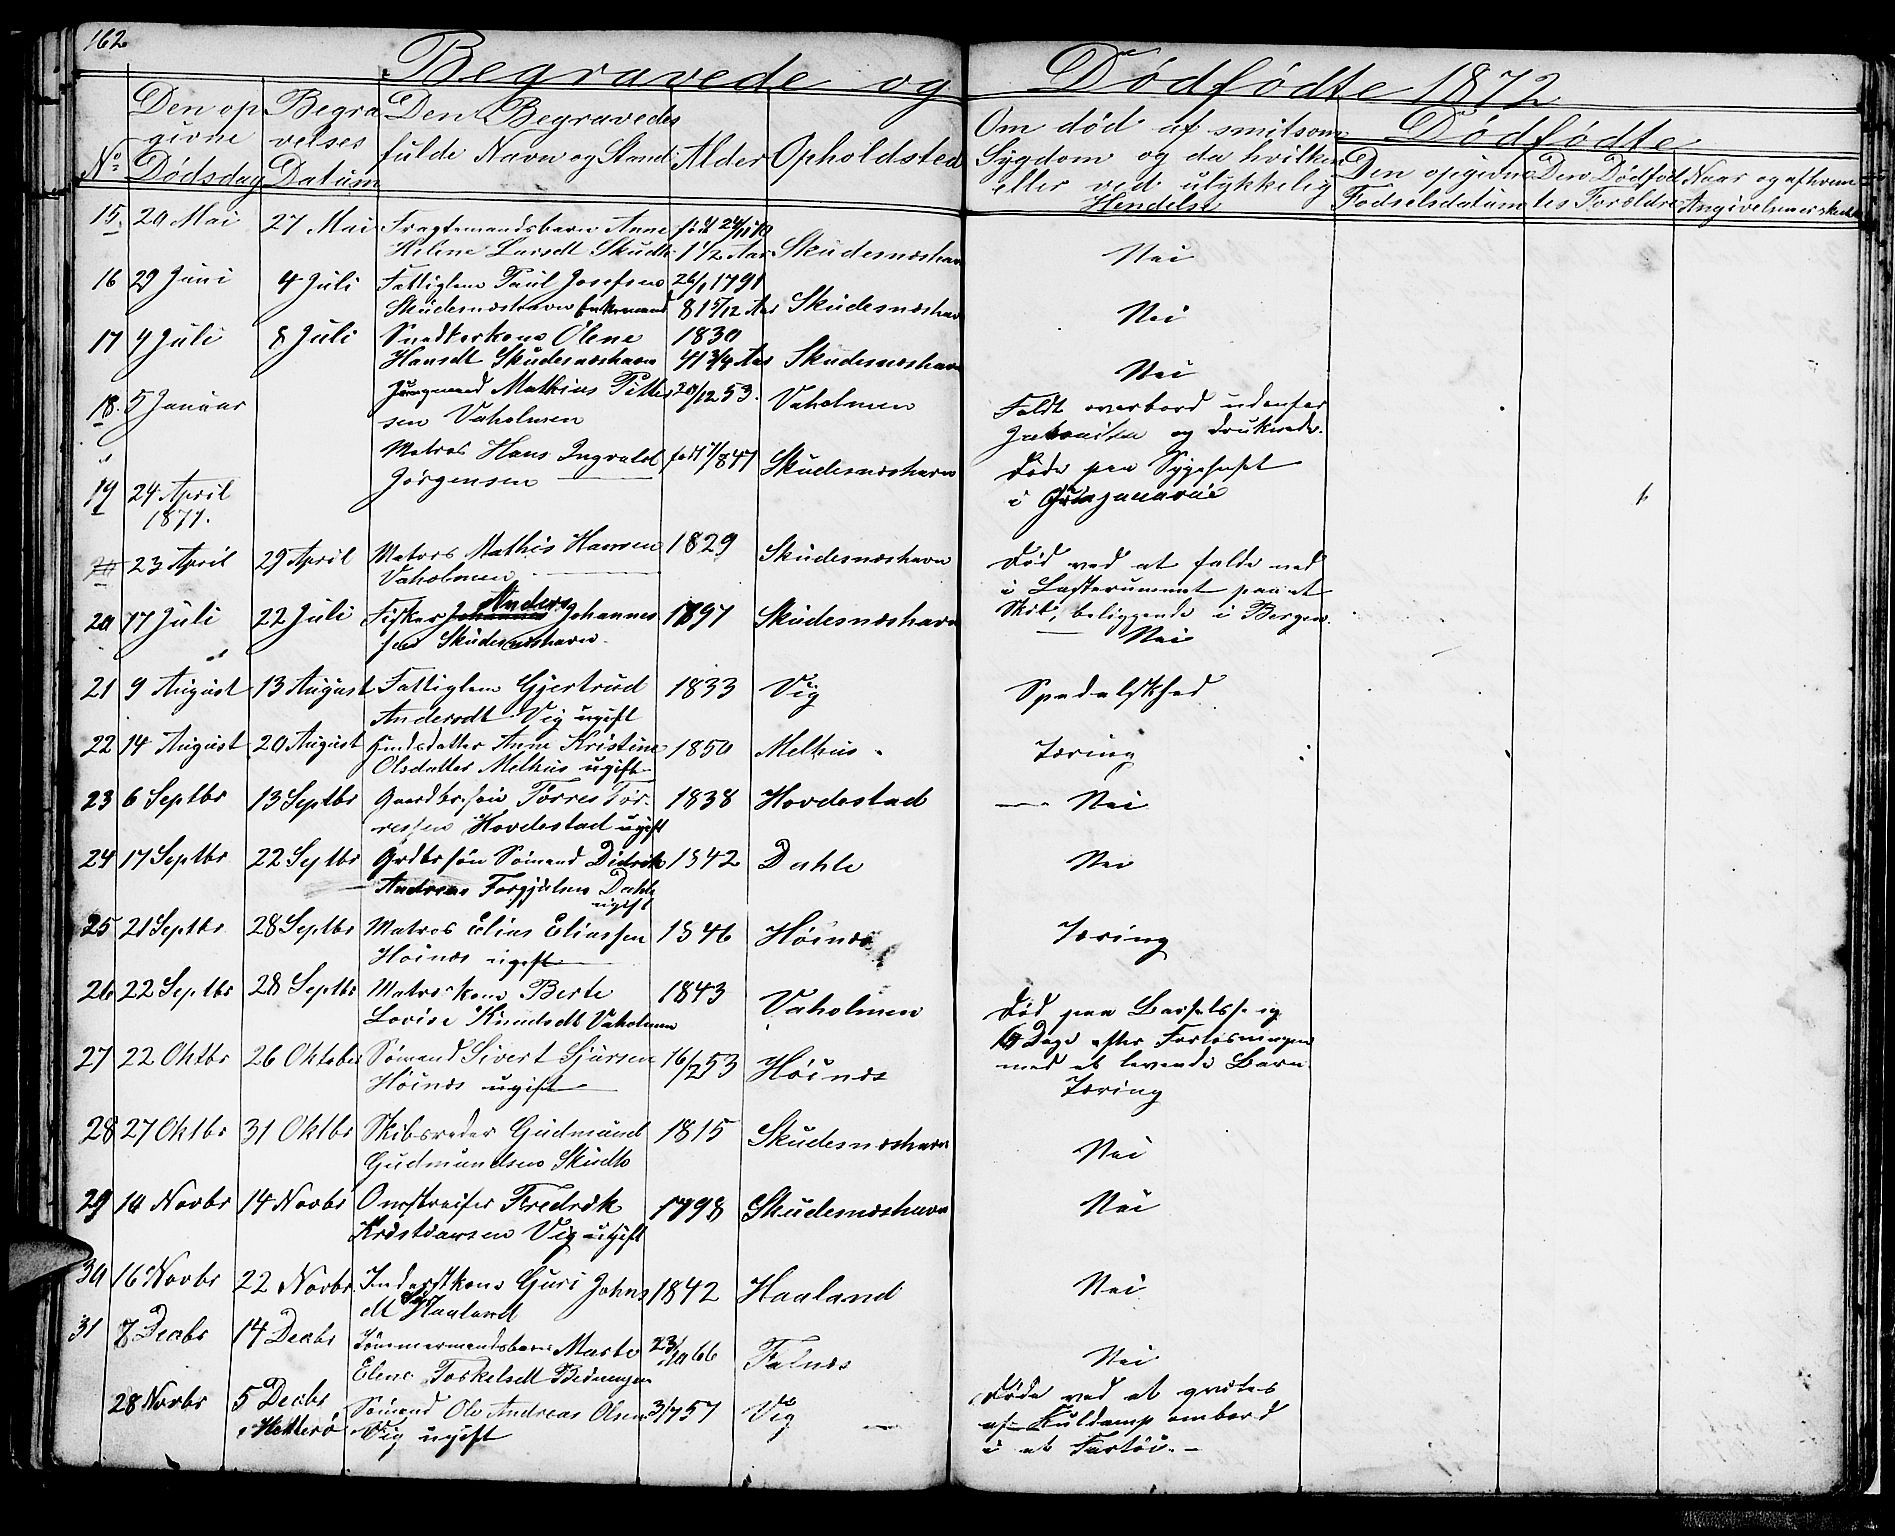 162
Begravede og Dødfødte 1872
No
Den opgivne Dødsdag
Begravelses Datum
Den Begravedes fulde Navn og Stand
Alder
Opholdsted
Om død af smitsom Sygdom og da hvilken eller ved ulykkelig Hendelse
Dødfødte
Den opgivne Fødselsdatum
Den Dødfødtes Forældre
Naar og af hvem Angivelsen er skedt
15. 20 Mai 27 Mai Fragtemandsbarn Anne født 24/11 70
Helene Larsdt Skudh 1 1/2 Aar Skudesnæshavn Nei
16 29 Juni 4 Juli Fattiglem Paul Josefsen 26/1 1791
Skudesnæshavn Enkemand 81 5/12 Aar Skudesnæshavn Nei
17 4 Juli 8 Juli Snedkerkone Olene 1830
Hansdt Skudesnæshavn 41 3/4 Aar Skudesnæshavn Nei
18. 5 Januar Jungmand Mathias Petter 20/12 53. Vaholmen Faldt overbord udenfor
sen Vaholmen og druknede.
19 24 April Matros Hans Ingvald født 1/ 847 Skudesnæshavn Døde paa Sygehuset
1871. Jørgensen i
20 23 April 29 April Matros Mathis Hansen 1829 Skudesnæshavn Død ved at falde ned
Vaholmen i Lasterummet paa et
Skib, beliggende i Bergen.
20 17 Juli 22 Juli Fisker Johannes Anders Johannes 1797 Skudesnæshavn Nei
sen Skudesnæshavn.
21 9 August 13 August Fattiglem Gjertrud 1833 Vig Spedalskhed
Andersdt Vig ugift
22 14 August 20 August Anne Kristine 1850 Melhus Tæring
Olsdatter Melhus ugift
23 6 Septbr 13 Septbr Gaardbrsøn Torres Tor- 1838 Hovdestad Nei
ressen Hovdestad ugift
24 17 Septbr 22 Septbr Grdbrsøn Sømand Didrik 1842 Dahle Nei
Andreas Torgjelsen Dahle
ugift
25 21 Septbr 28 Septbr Matros Elias Eliassen 1846 Høinæs Tæring
Høinæs ugift
26 22 Septbr 28 Septbr Matroskone Berte 1843 Vaholmen Død paa Barselseng
Lovise Knudsdt Vaholmen Dage efter Forløsningen
med et levende Barn
27 22 Oktbr 26 Oktober Sømand Sivert Sjursen 16/2 53 Høinæs Tæring
Høinæs ugift
28 27 Oktbr 31 Oktbr Skibsreder Gudmund 1815 Skudesnæshavn Nei
Gudmundsen Skudh
29 10 Novbr 14 Novbr Omstreifer Fredrik 1798 Skudesnæshavn Nei
Kristiansen Vig ugift
30 16 Novbr 22 Novbr. Inderstkone Guri Johns 1842 Haaland Nei
dt Haaland
31 7 Decbr 14 Decbr Tømmermandsbarn Marte 23/10 66 Falnæs Nei
Elene Torkelsdt
28 Novbr 5 Decbr Sømand Ole Andreas Olsen 3/7 57 Vig Døde ved at qvæles
Vig ugift af Kuldamp ombord
i et Fartøi. -